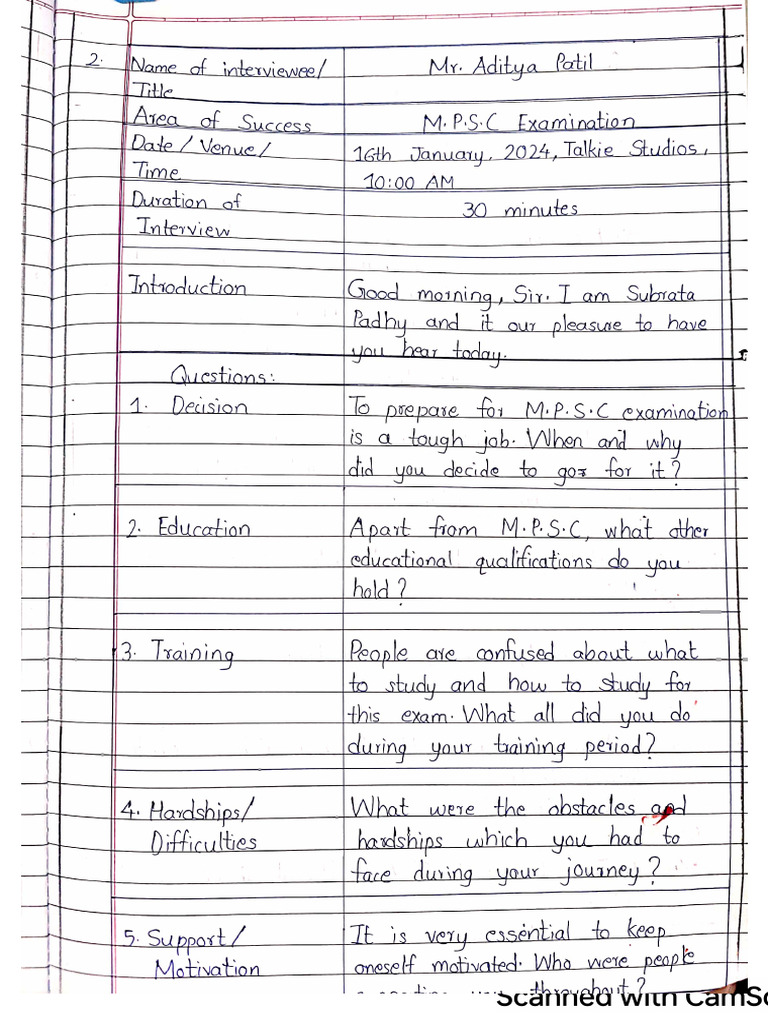 2. Name of interviewee/ Mr. Aditya Patil
Title
Area of Success M.P.S.C Examination
Date/Venue/ 16th January, 2024, Talkie Studios,
Time 10:00 AM
Duration of 30 minutes
Interview
Introduction Good morning, Sir. I am Subrata
Padhy and it our pleasure to have
you hear today.
Questions:
1. Decision To prepare for M.P.S.C examination
is a tough job. When and why
did you decide to go for it?
2. Education Apart from M.P.S.C, what other
educational qualifications do you
hold?
3. Training People are confused about what
to study and how to study for
this exam. What all did you do
during your training period?
4. Hardships/ What were the obstacles and
Difficulties hardships which you had to
face during your journey?
5. Support/ It is very essential to keep
Motivation oneself motivated. Who were people
throughout?
Scanned with CamSc